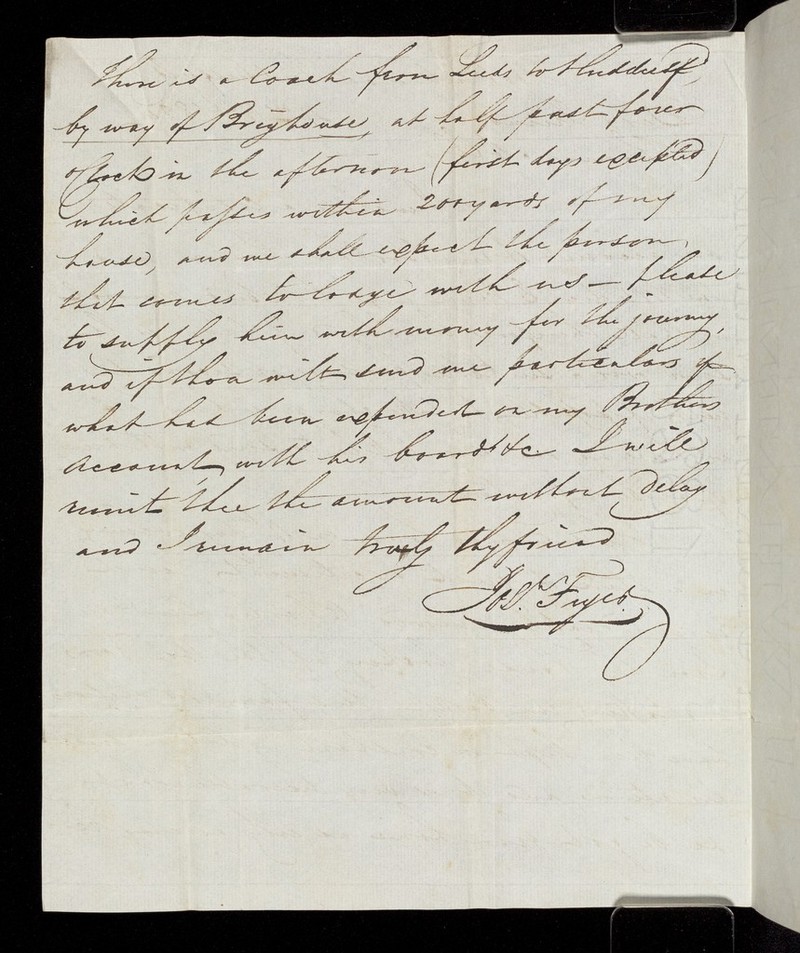 There is a Coach from Leeds to Huddersfd,
by way of Brighouse, at half past four
o'Clock in the afternoon (first days excepted)
which passes within 200 yards of my
house, and we shall expect the person,
that comes to lodge with us – please
to supply him with money for the journey,
and if thou wilt send me particulars of
what has been expended on my Brothers
account, with his board &c. I will
remit thee the amount without delay
and I remain truly thy friend
Josh.